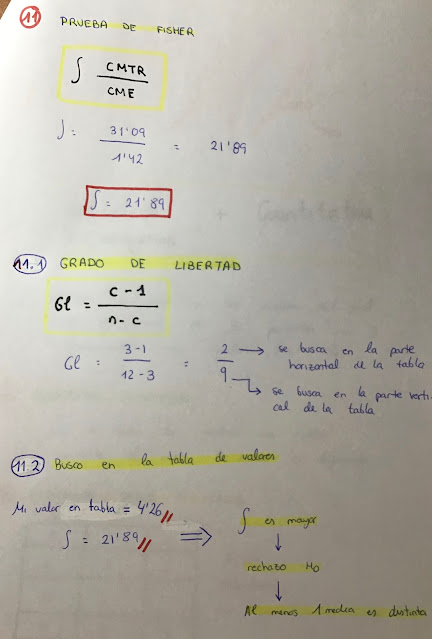 11 PRUEBA DE FISHER
∫ CMTR / CME
∫ = 31'09 / 1'42 = 21'89
∫ = 21'89
11.1 GRADO DE LIBERTAD
Gl = c - 1 / n - c
Gl = 3-1 / 12-3 = 2 / 9
→ se busca en la parte
horizontal de la tabla
↳ se busca en la parte verti
cal de la tabla
11.2 Busco en la tabla de valores
Mi valor en tabla = 4'26 //
∫ = 21'89 //
⇒ ∫ es mayor
↓
rechazo H0
↓
Al menos 1 media es distinta